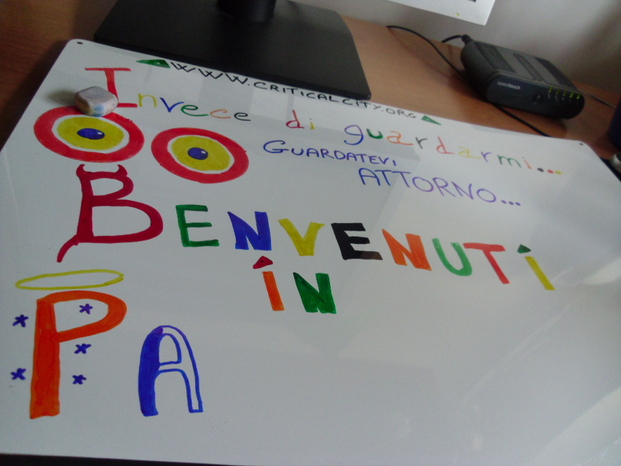 WWW.CRITICALCITY.ORG
Invece di guardarmi...
GUARDATEVI
ATTORNO...
BENVENUTI
IN
PA